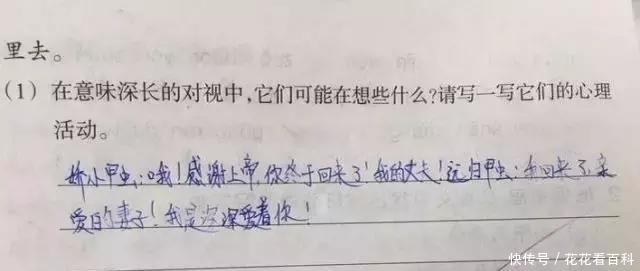 里去。
(1) 在意味深长的对视中,它们可能在想些什么?请写一写它们的心理
活动。
娇小甲虫:哦!感谢上帝,你终于回来了!我的丈夫!远归甲虫:我回来了,亲
爱的妻子!我是深深爱着你!
快传号/花花看百科